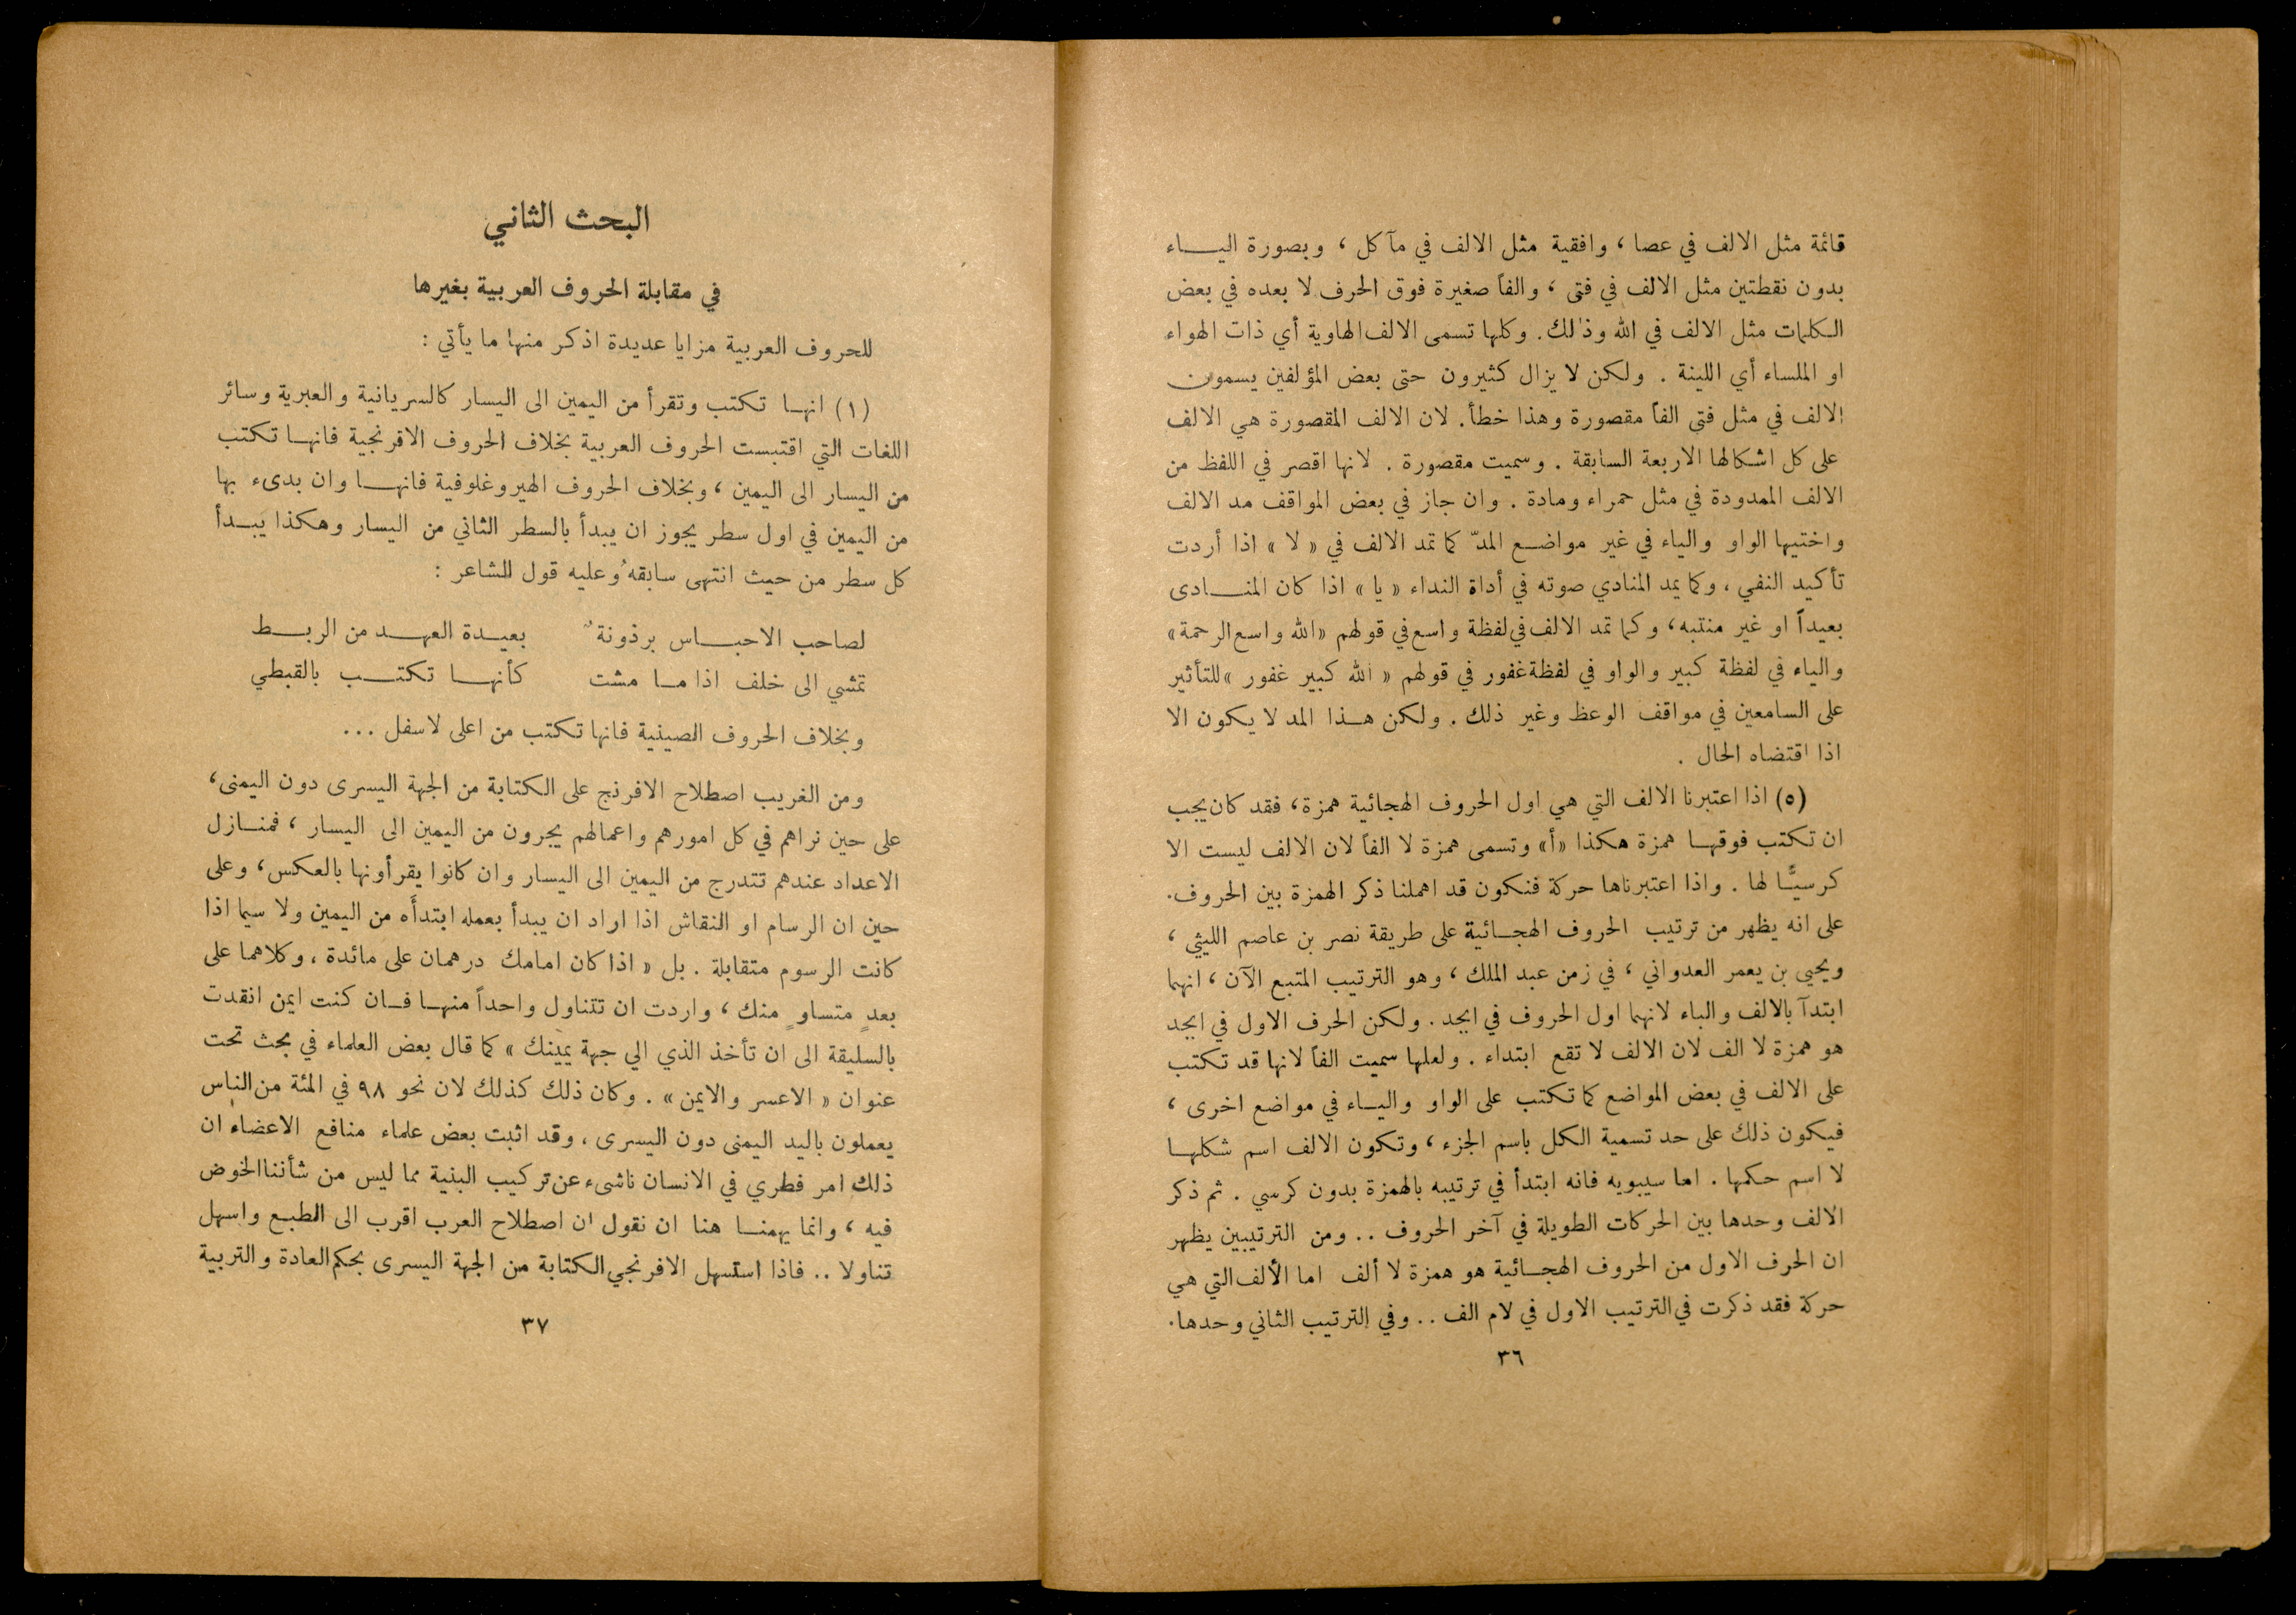 قائمة مثل الالف في عصا ، وافقية مثل الالف في مآكل ، وبصورة اليـاء
بدون نقطتين مثل الالف في فتى ، والفاً صغيرة فوق الحرف لا بعده في بعض
الكلمات مثل الالف في الله وذٰلك. وكلها تسمى الالف الهاوية أي ذات الهواء
او الملساء أي اللينة . ولكن لا يزال كثيرون حتى بعض المؤلفين يسمون
الالف في مثل فتى الفاً مقصورة وهذا خطأ. لان الالف المقصورة هي الالف
على كل اشكالها الاربعة السابقة . وسميت مقصورة . لانها اقصر في اللفظ من
الالف الممدودة في مثل حمراء ومادة . وان جاز في بعض المواقف مد الالف
واختيها الواو والياء في غير مواضع المدّ كما تمد الالف في « لا » اذا أردت
تأكيد النفي ، وكما يمد المنادي صوته في أداة النداء « يا » اذا كان المنـادى
بعيداً او غير منتبه، وكما تمد الالف في لفظة واسع في قولهم «الله واسع الرحمة»
والياء في لفظة كبير والواو في لفظة غفور في قولهم « الله كبير غفور » للتأثير
على السامعين في مواقف الوعظ وغير ذلك . ولكن هـذا المد لا يكون الا
اذا اقتضاه الحال .
(٥) اذا اعتبرنا الالف التي هي اول الحروف الهجائية همزة، فقد كان يجب
ان تكتب فوقهـا همزة هكذا «أ» وتسمى همزة لا الفاً لان الالف ليست الا
كرسيًّا لها . واذا اعتبرناها حركة فنكون قد اهملنا ذكر الهمزة بين الحروف.
على انه يظهر من ترتيب الحروف الهجـائية على طريقة نصر بن عاصم الليثي ،
ويحيى بن يعمر العدواني ، في زمن عبد الملك ، وهو الترتيب المتبع الآن ، انهما
ابتدآ بالالف والباء لانهما اول الحروف في ابجد . ولكن الحرف الاول في ابجد
هو همزة لا الف لان الالف لا تقع ابتداء . ولعلها سميت الفاً لانها قد تكتب
على الالف في بعض المواضع كما تكتب على الواو واليـاء في مواضع اخرى ،
فيكون ذلك على حد تسمية الكل باسم الجزء ، وتكون الالف اسم شكلهـا
لا اسم حكمها . اما سيبويه فانه ابتدأ في ترتيبه بالهمزة بدون كرسي . ثم ذكر
الالف وحدها بين الحركات الطويلة في آخر الحروف .. ومن الترتيبين يظهر
ان الحرف الاول من الحروف الهجـائية هو همزة لا ألف اما الألف التي هي
حركة فقد ذكرت في الترتيب الاول في لام الف .. وفي الترتيب الثاني وحدها.
٣٦
البحث الثاني
في مقابلة الحروف العربية بغيرها
للحروف العربية مزايا عديدة اذكر منها ما يأتي :
(١) انهـا تكتب وتقرأ من اليمين الى اليسار كالسريانية والعبرية وسائر
اللغات التي اقتبست الحروف العربية بخلاف الحروف الافرنجية فانهـا تكتب
من اليسار الى اليمين ، وبخلاف الحروف الهيروغلوفية فانهـا وان بدىء بها
من اليمين في اول سطر يجوز ان يبدأ بالسطر الثاني من اليسار وهكذا يبـدأ
كل سطر من حيث انتهى سابقهُ وعليه قول الشاعر :
لصاحب الاحبـاس برذونةٌ بعيـدة العهـد من الربـط
تمشي الى خلف اذا مـا مشت كأنهـا تكتـب بالقبطي
وبخلاف الحروف الصينية فانها تكتب من اعلى لاسفل ...
ومن الغريب اصطلاح الافرنج على الكتابة من الجهة اليسرى دون اليمنى،
على حين نراهم في كل امورهم واعمالهم يجرون من اليمين الى اليسار ، فمنـازل
الاعداد عندهم تتدرج من اليمين الى اليسار وان كانوا يقرأونها بالعكس، وعلى
حين ان الرسام او النقاش اذا اراد ان يبدأ بعمله ابتدأه من اليمين ولا سيما اذا
كانت الرسوم متقابلة . بل « اذا كان امامك درهمان على مائدة ، وكلاهما على
بعدٍ متساوٍ منك ، واردت ان تتناول واحداً منهـا فـان كنت ايمن انقدت
بالسليقة الى ان تأخذ الذي الي جهة يمينك » كما قال بعض العلماء في بحث تحت
عنوان « الاعسر والايمن » . وكان ذلك كذلك لان نحو ٩٨ في المئة من الناس
يعملون باليد اليمنى دون اليسرى ، وقد اثبت بعض علماء منافع الاعضاء ان
ذلك امر فطري في الانسان ناشىء عن تركيب البنية مما ليس من شأننا الخوض
فيه ، وانما يهمنـا هنا ان نقول ان اصطلاح العرب اقرب الى الطبـع واسهل
تناولا .. فاذا استسهل الافرنجي الكتابة من الجهة اليسرى بحكم العادة والتربية
٣٧